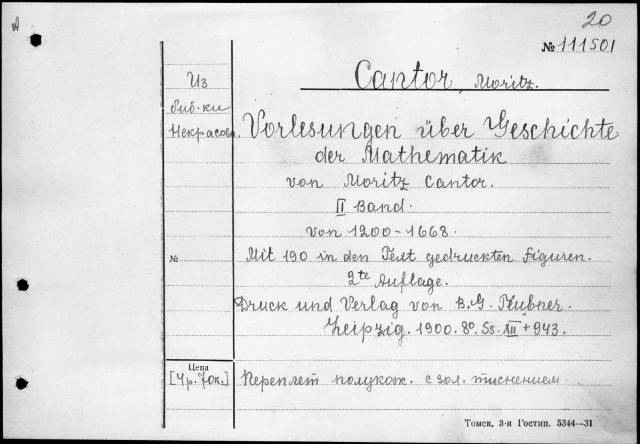 A
20
№ 111501
Cantor, Moritz.
Из
биб-ки
Некрасова.
Vorlesungen über Geschichte
der Mathematik
von Moritz Cantor.
II Band.
von 1200-1668.
№
Mit 190 in den Text gedruckten Figuren.
2te Auflage.
Druck und Verlag von B.G. Teubner.
Leipzig. 1900. 8º. Ss. XII + 943.
Цена
[4р. 70к.]
Переплет полукож. с зол. тиснением.
Томск, 3-я Гостип. 5344—31